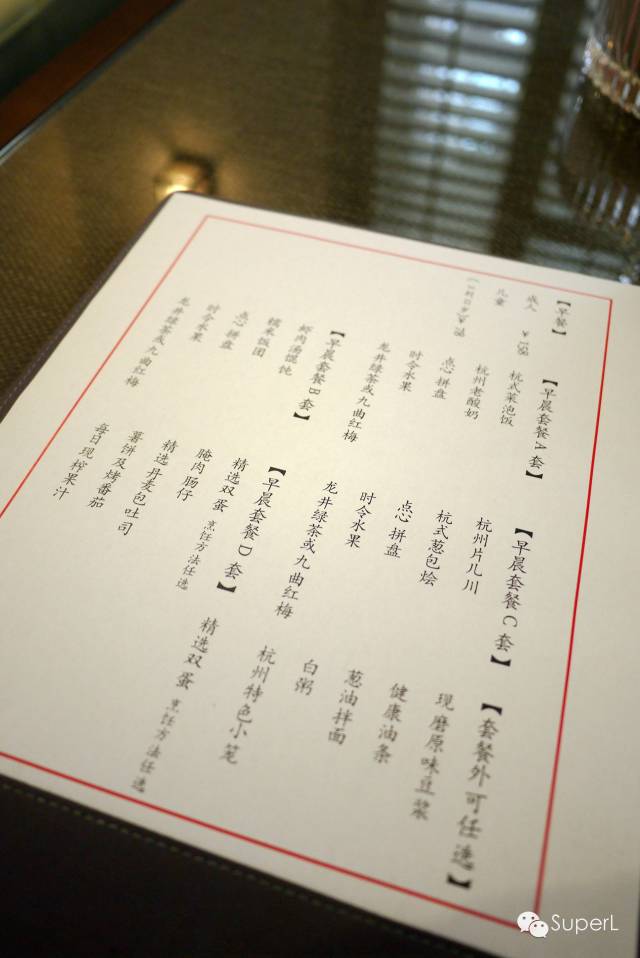 【早餐】
成人
儿童
【早晨套餐A套】
杭式菜泡饭
杭州老酸奶
点心拼盘
时令水果
龙井绿茶或九曲红梅
【早晨套餐B套】
虾肉汤馄饨
糯米饭团
点心拼盘
时令水果
龙井绿茶或九曲红梅
【早晨套餐C套】
杭州片儿川
杭式葱包烩
点心拼盘
时令水果
龙井绿茶或九曲红梅
【早晨套餐D套】
精选双蛋 烹饪方法任选
腌肉肠仔
精选丹麦包吐司
薯饼及烤番茄
每日现榨果汁
【套餐外可任选】
现磨原味豆浆
健康油条
葱油拌面
白粥
杭州特色小笼
精选双蛋 烹饪方法任选
SuperL